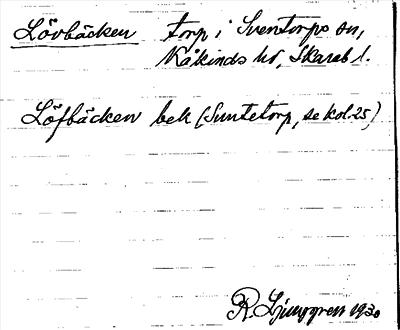 Lövbäcken torp i Sventorps sn,
Kåkinds hd, Skarab. l.
Löfbäcken bek (Suntetorp, se kol. 25)
R. Ljunggren 1930